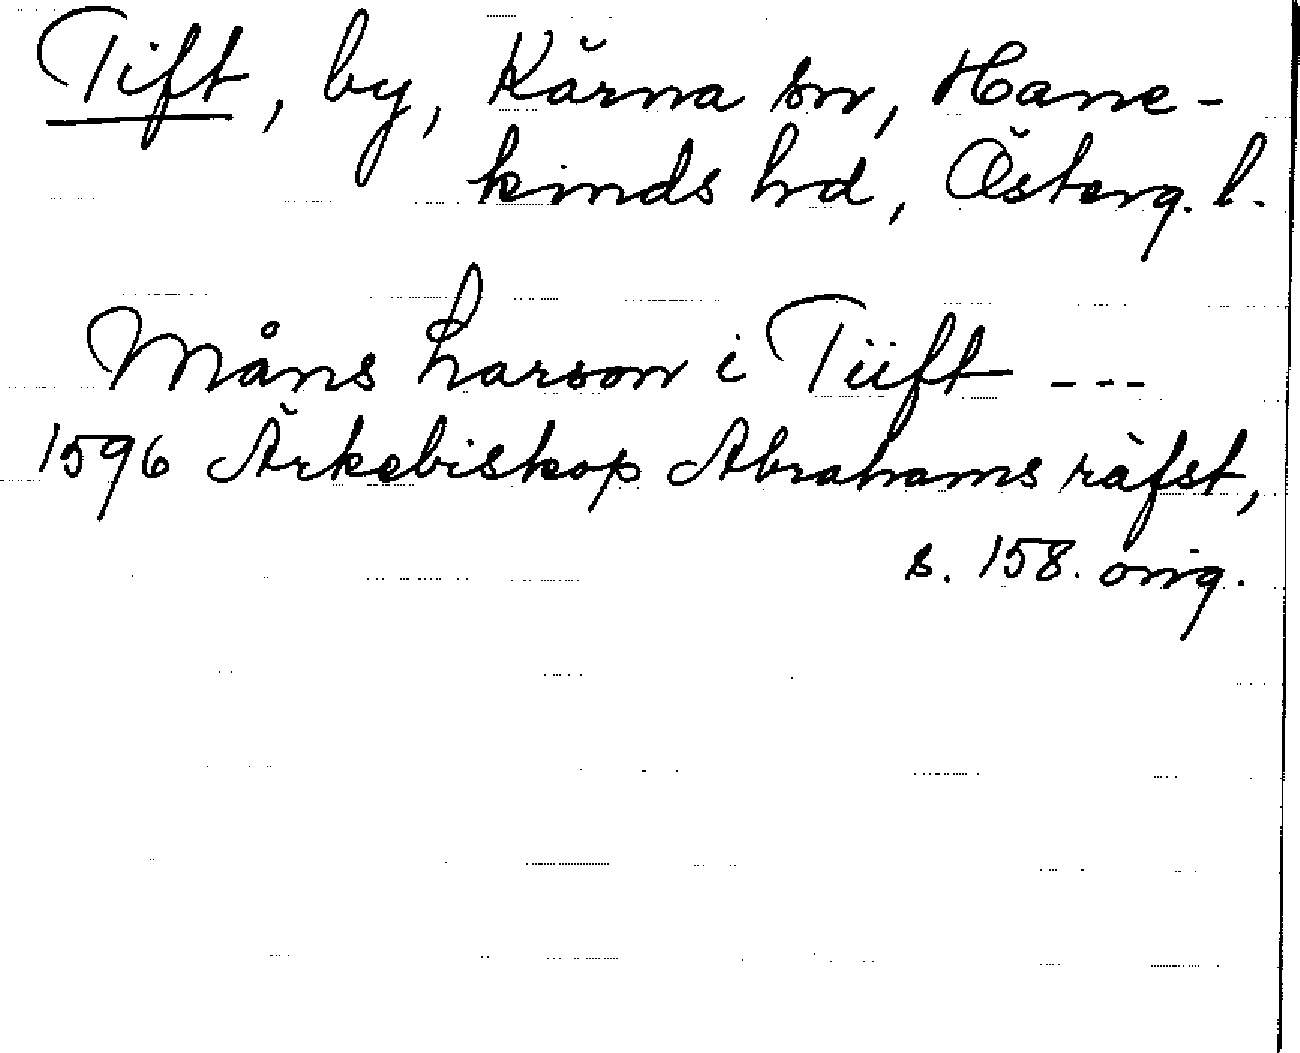 Tift, by, Kärna sn, Hane-
kinds hd, Österg. l.
Måns Larson i Tiift ---
1596 Ärkebiskop Abrahams räfst,
s. 158. orig.